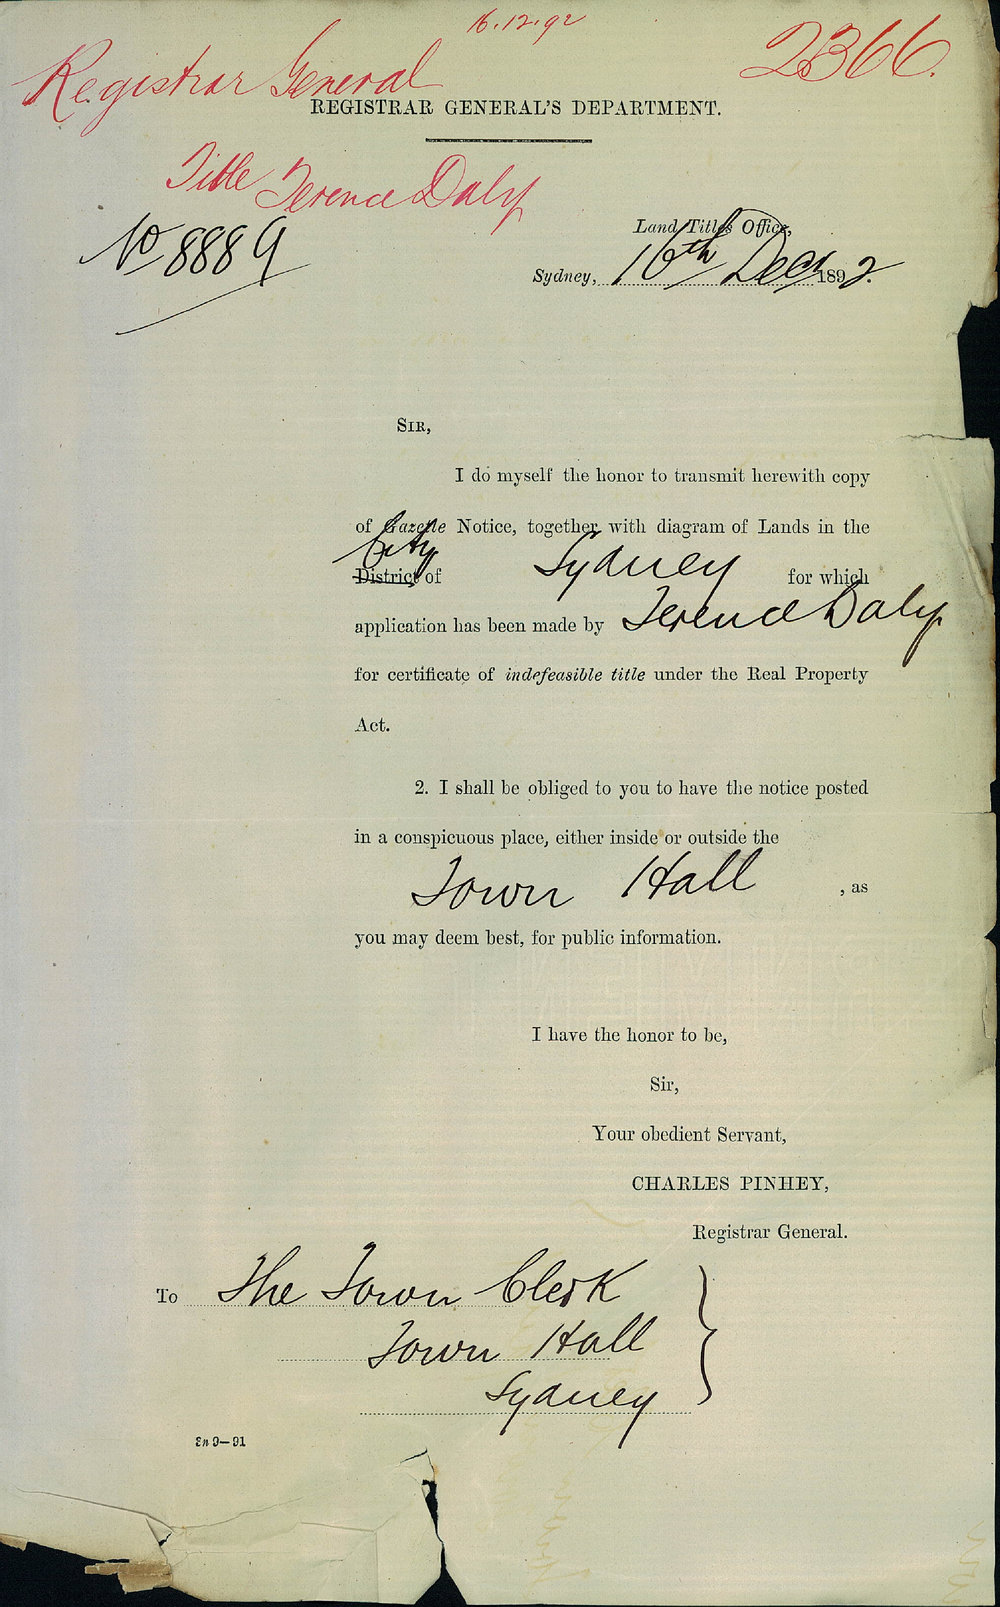 16.12.92
2366.
Registrar General
REGISTRAR GENERAL'S DEPARTMENT.
Title Terence Daly
No 8889
Land Titles Office,
Sydney, 16th Decr 1892.
SIR,
I do myself the honor to transmit herewith copy
of Gazette Notice, together with diagram of Lands in the
City
District of Sydney for which
application has been made by Terence Daly
for certificate of indefeasible title under the Real Property
Act.
2. I shall be obliged to you to have the notice posted
in a conspicuous place, either inside or outside the
Town Hall , as
you may deem best, for public information.
I have the honor to be,
Sir,
Your obedient Servant,
CHARLES PINHEY,
Registrar General.
To The Town Clerk
Town Hall
Sydney
9—91